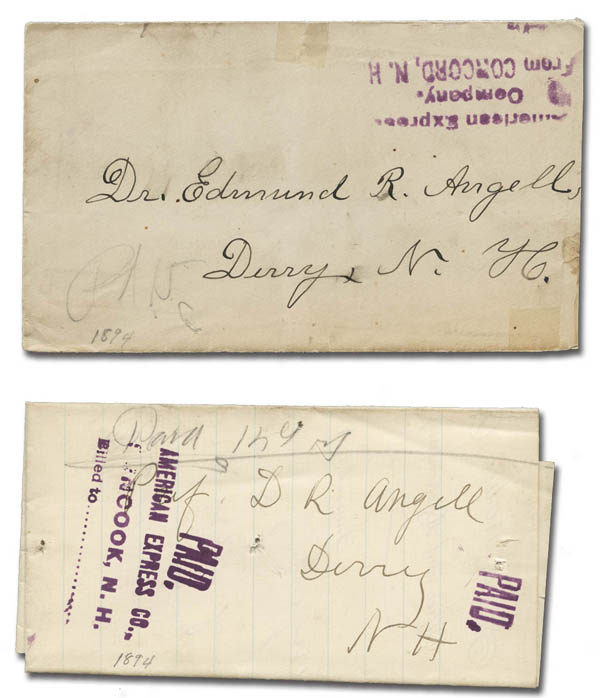 American Express
Company.
From CONCORD, N. H
Dr. Edmund R. Angell,
Derry, N. H.
1894
Paid
Prof. D R Angell
Derry
N H
PAID.
AMERICAN EXPRESS CO.,
COOK, N. H.
Billed to
PAID.
1894